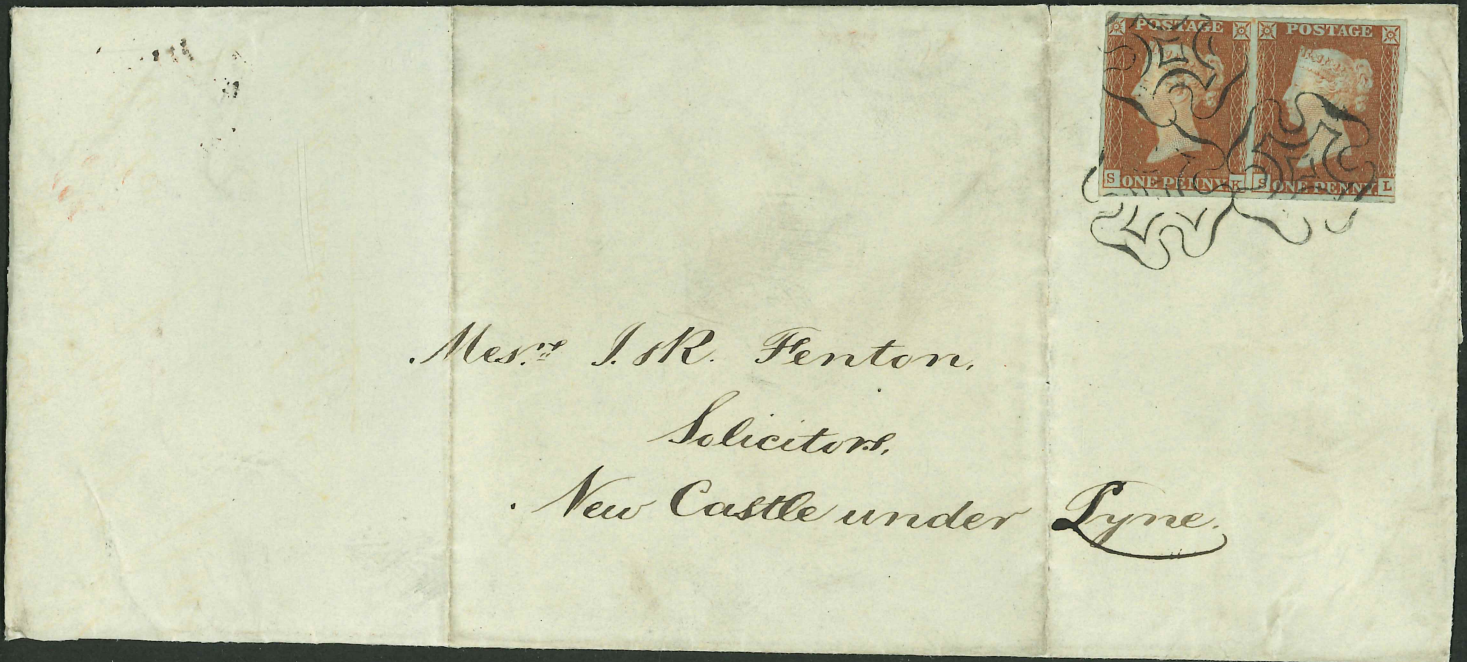 POSTAGE POSTAGE
S ONE PENNY K S ONE PENNY L
Mes.rs J. & R. Fenton,
Solicitors,
New Castle under Lyne.